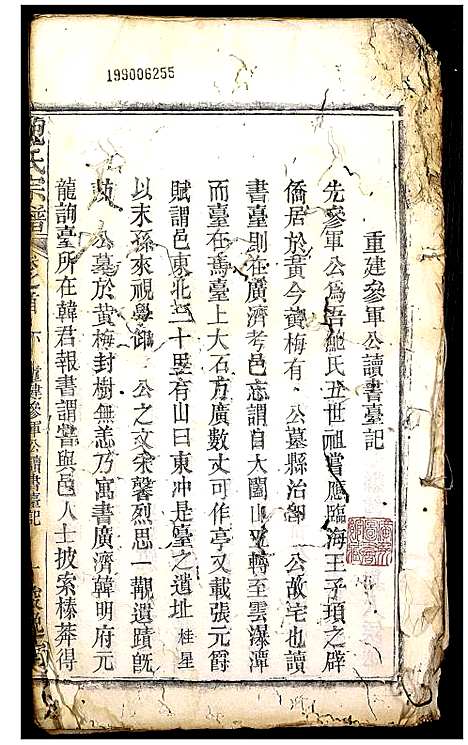 199006255
重建參軍公讀書臺記
先參軍公爲吾鮑氏五世祖嘗應臨海王子頊之辟
僑居於黃今黃梅有 公墓縣治 公故宅也讀
書臺則在廣濟考邑志謂自大閣山 轉至雲瀑潭
而臺在焉臺上大石方廣數丈可作亭又載張元爵
賦謂邑東北三十里有山曰東沖是臺之遺址 桂星
以末孫來視學 公之文采馨烈思一觀遺蹟旣
公墓於黃梅封樹無恙乃寓書廣濟韓明府元
龍詢臺所在韓君報書謂嘗與邑人士披索榛莽得
鮑氏宗譜 卷之首 重建參軍公讀書臺記 一